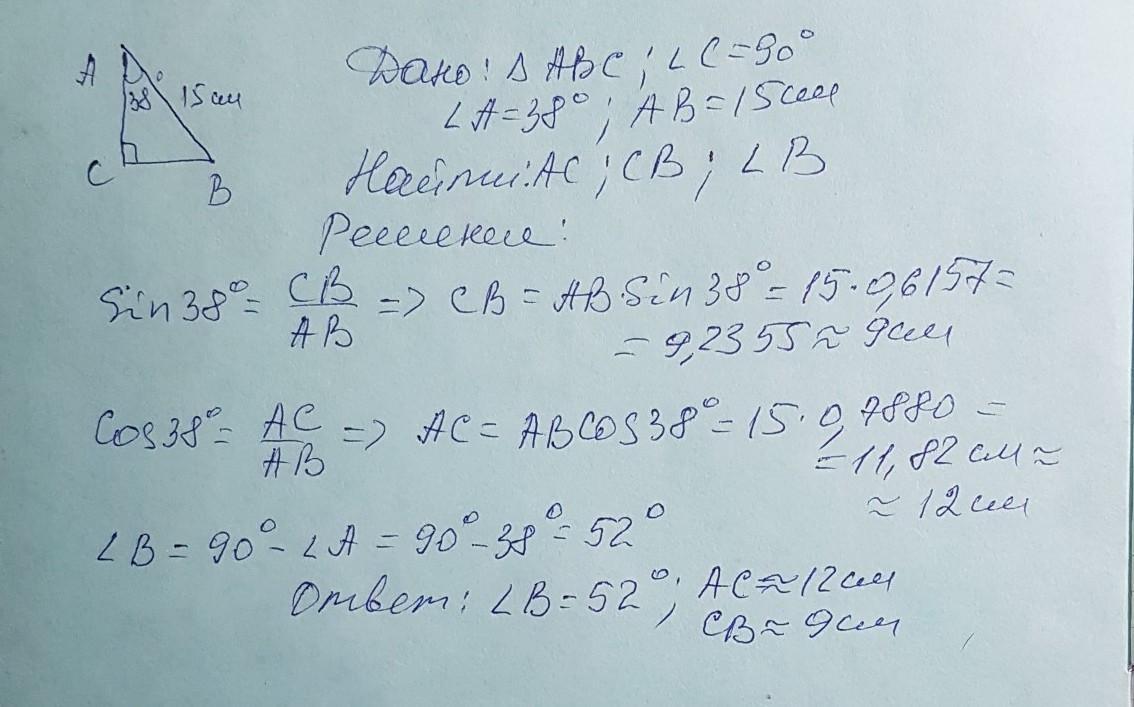 A
38°
15 см
C
B
Дано: Δ ABC; ∠C=90°
∠A=38°; AB=15см
Найти: AC; CB; ∠B
Решение:
Sin38°= CB/AB => CB = AB·Sin38°=15·0,6157=
= 9,2355≈9см
Cos38°= AC/AB => AC= ABCOS38°=15·0,7880=
=11,82см≈
≈12см
∠B=90°-∠A=90°-38°=52°
Ответ: ∠B=52°; AC≈12см
CB≈9см